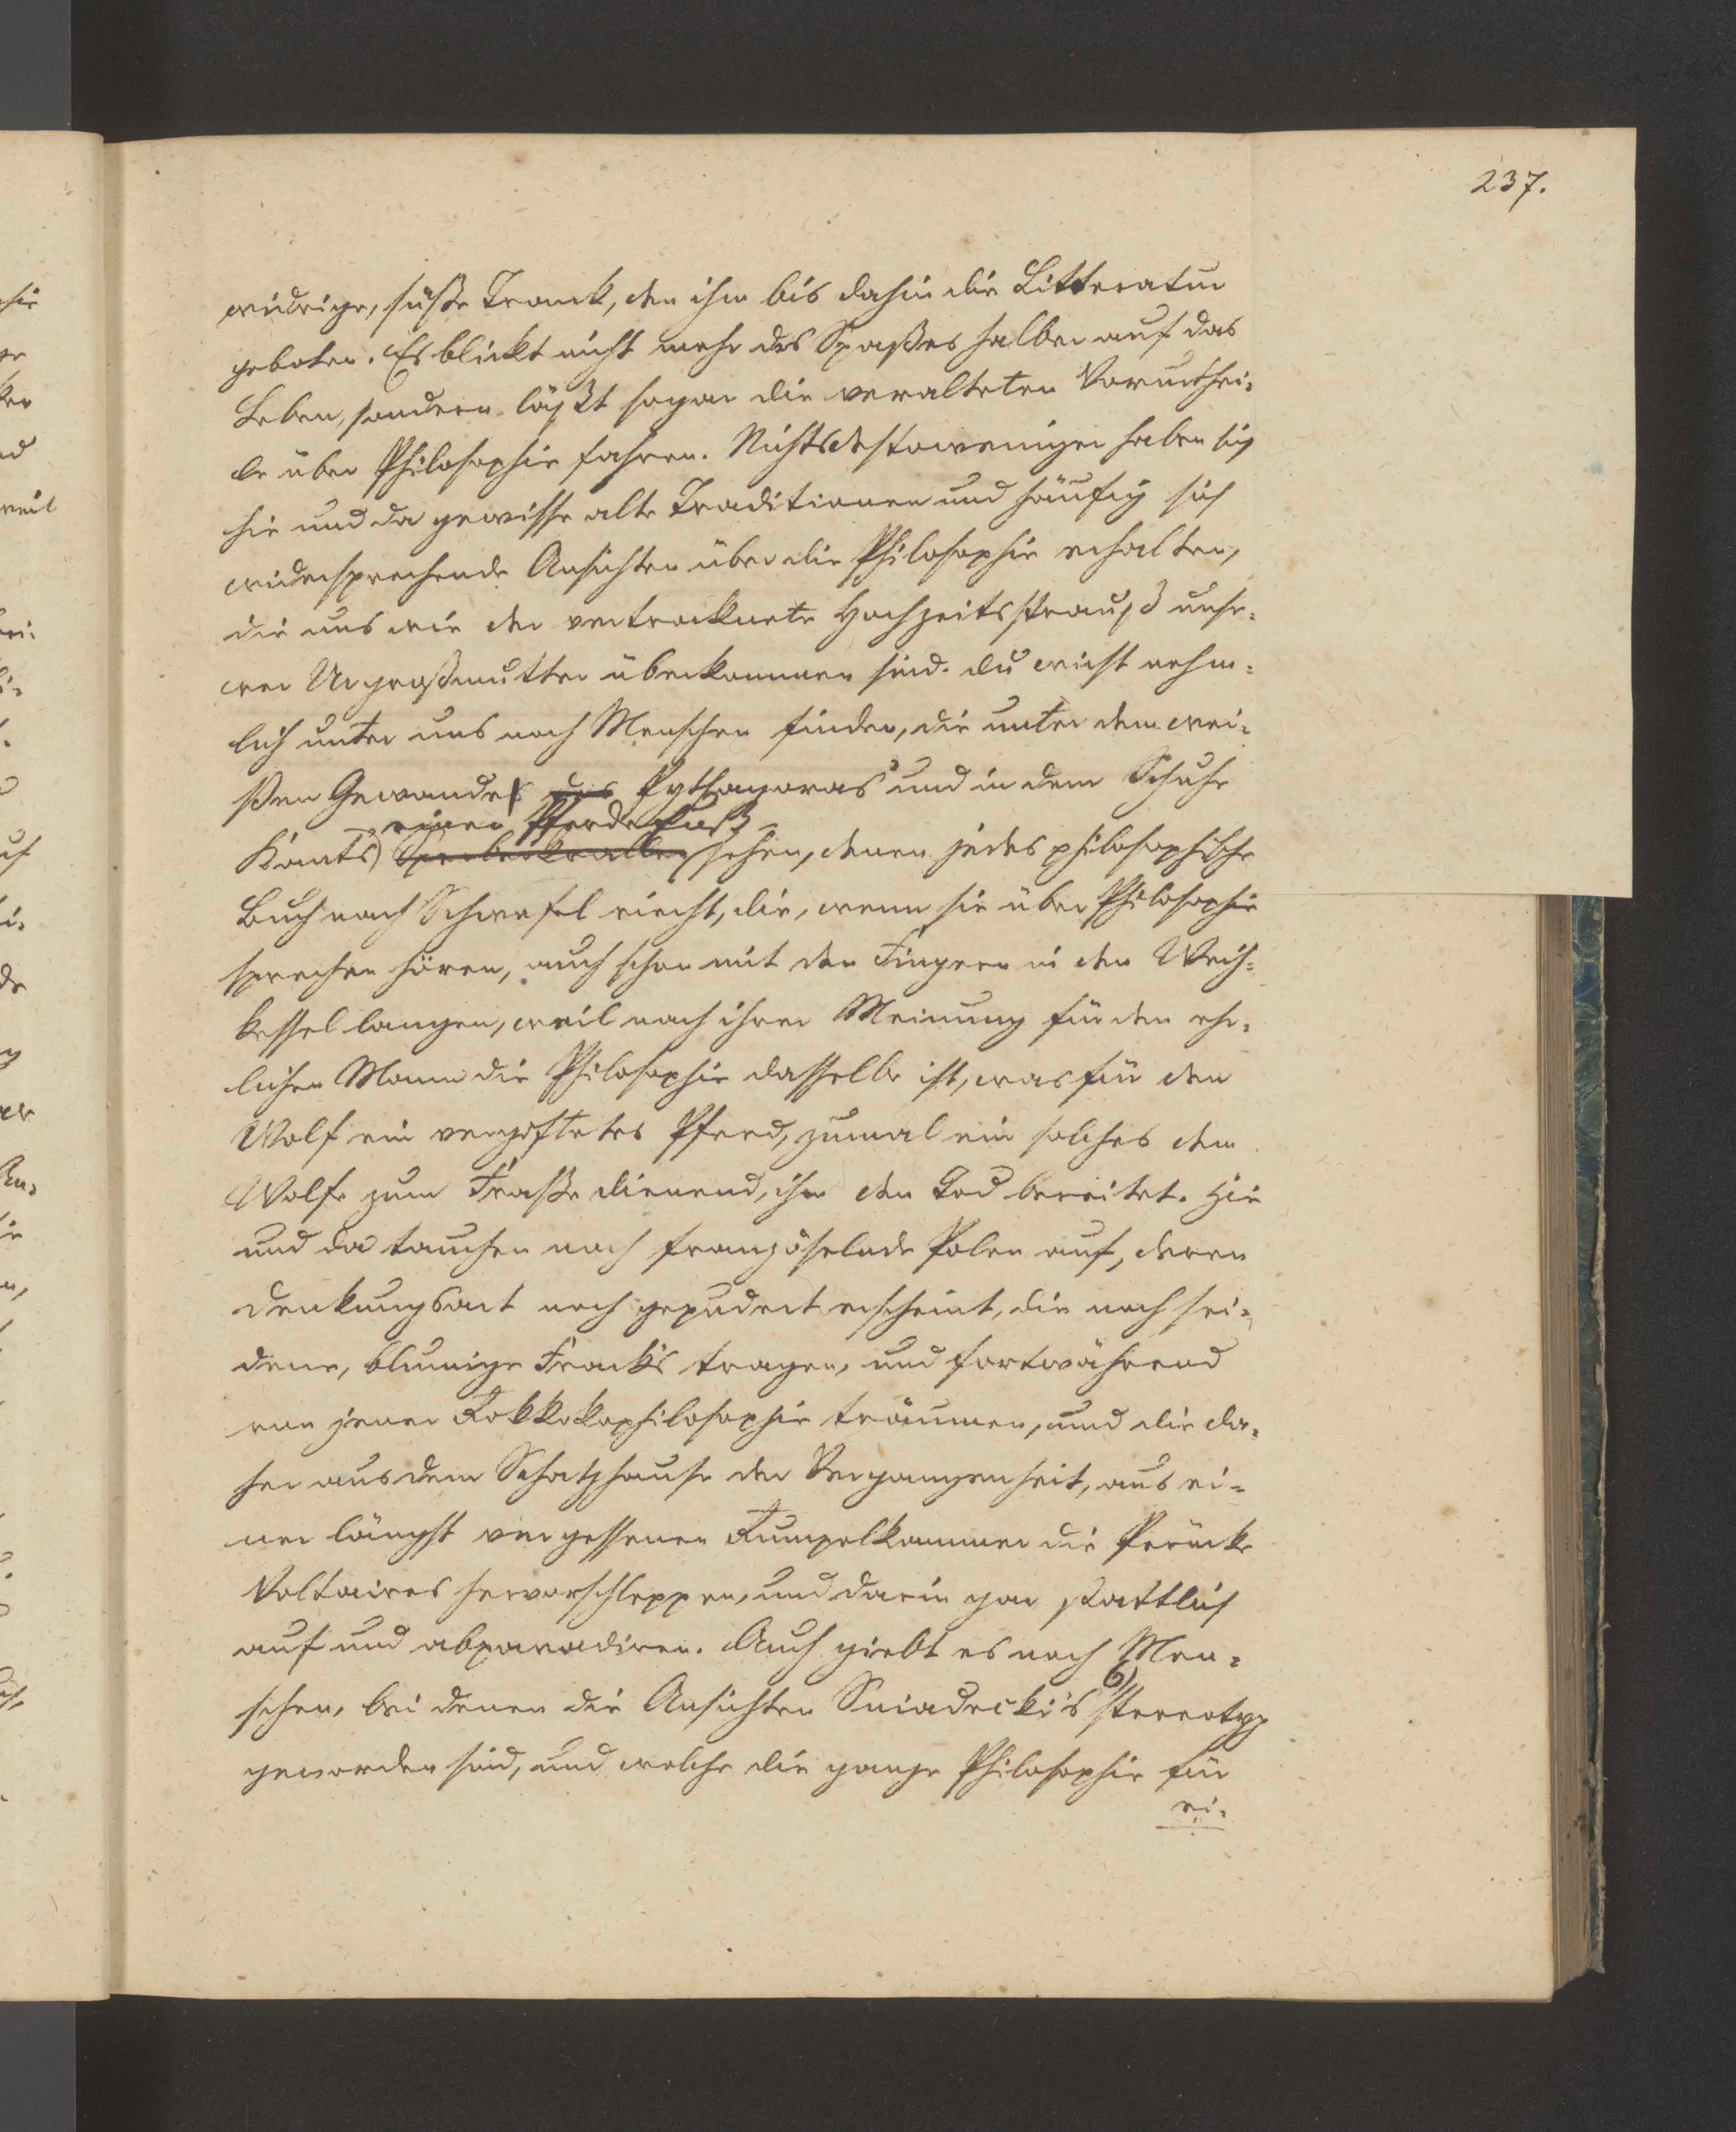 237.
widrige, süße Trank, den ihm bis dahin die Litteratur
geboten. Es blickt nicht mehr des Spaßes halber auf das
Leben, sondern läßt sogar die veralteten Vorurthei-
le über Philosophie fahren. Nichtsdestoweniger haben sich
hie und da gewisse alte Traditionen und häufig sich
widersprechende Ansichten über die Philosophie erhalten,
die uns wie der vertrocknete Hochzeitsstrauß unse-
rer Urgroßmutter überkommen sind. Du wirst nehm-
lich unter uns noch Menschen finden, die unter dem wei-
ßen Gewande des Pythagoras und in dem Schuhe
einen Pferdefuß
Kants) sehen, denen jedes philosophische
Buch nach Schwefel riecht, die, wenn sie über Philosophie
sprechen hören, auch schon mit den Fingern in den Weih-
kessel langen, weil nach ihrer Meinung für den ehr-
lichen Mann die Philosophie dasselbe ist, was für den
Wolf ein vergiftetes Pferd, zumal ein solches dem
Wolfe zum Fraße dienend, ihm den Tod bereitet. Hie
und da tauchen noch französelnde Polen auf, deren
Denkungsart noch gepudert erscheint, die noch sei-
dene, blumige Frack's tragen, und fortwährend
von jener Rokkokophilosophie träumen, und die da-
her aus dem Schatzhause der Vergangenheit, aus ei-
ner längst vergessenen Rumpelkammer die Perücke
Voltaires hervorschleppen, und darin gar stattlich
auf und abparadiren. Auch giebt es noch Men-
schen, bei denen die Ansichten Sniadecki's 6) stereotyp
geworden sind, und welche die ganze Philosophie für
ei-